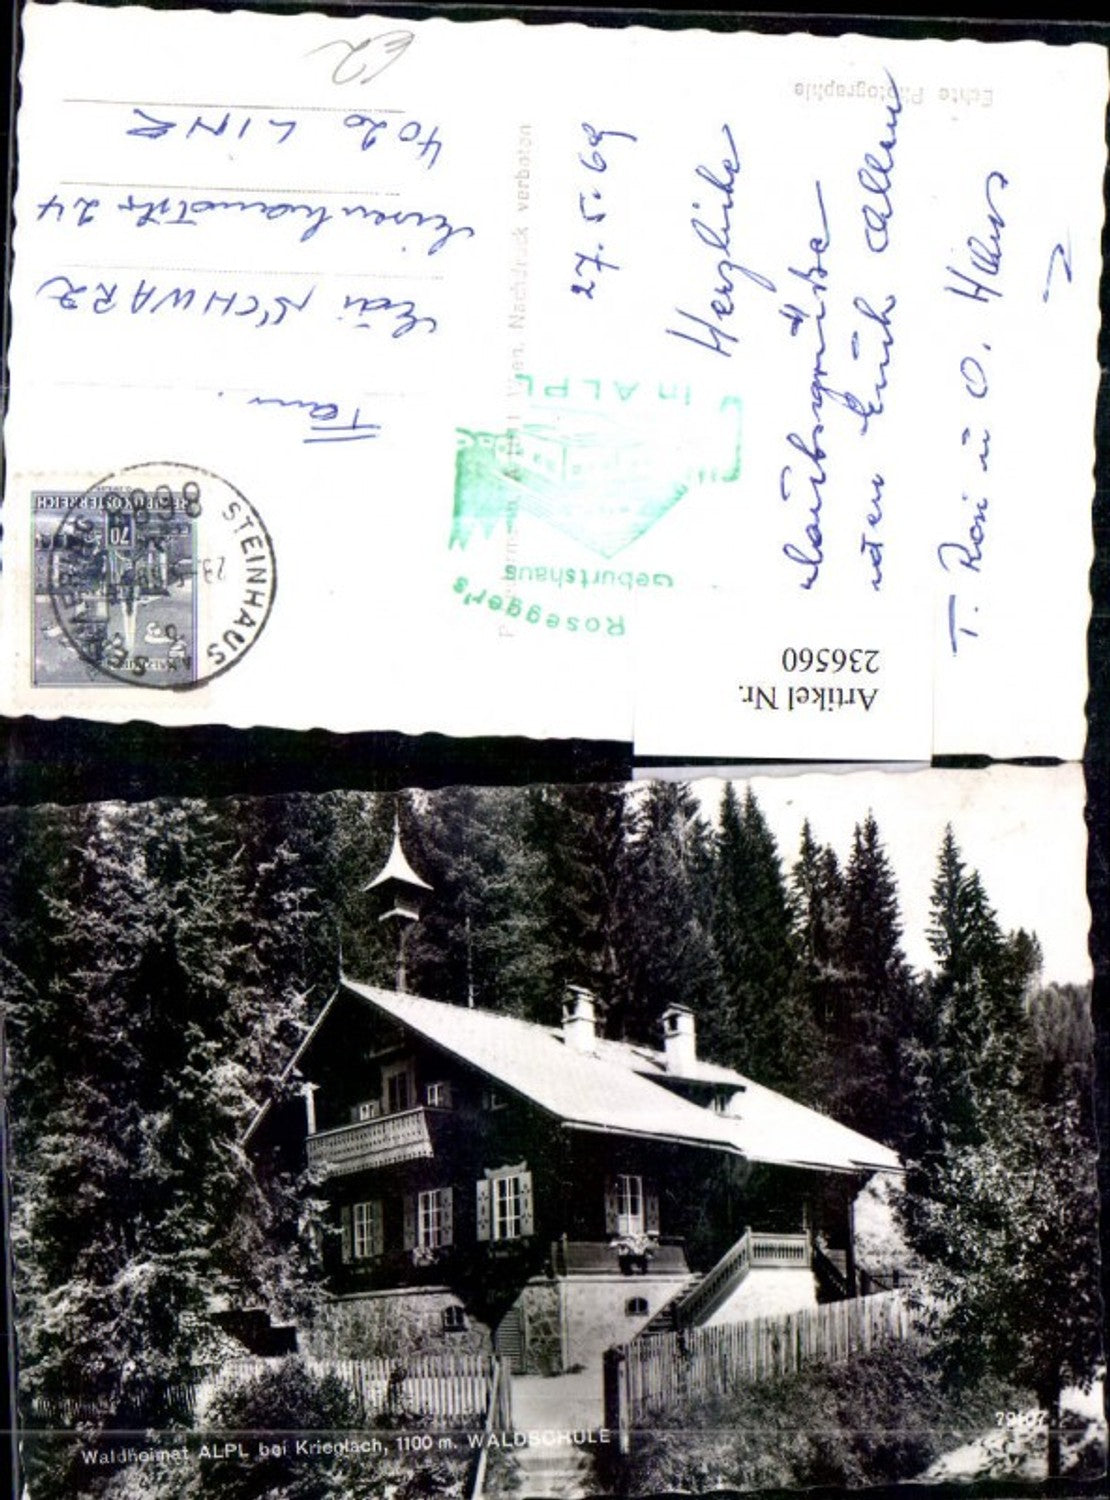 Echte Photographie
27. 5. 69
Herzliche
Urlaubsgrüße
Euch allen
T. Rosi u O. Hans
Nachdruck verboten
Rosegger's
Geburtshaus
in ALPL
Fam.
Edi SCHWARZ
24
4020 LINZ
REPUBLIK ÖSTERREICH
70
8698 STEINHAUS
Artikel Nr.
236560
Waldheimat ALPL bei Krieglach, 1100 m. WALDSCHULE
79107